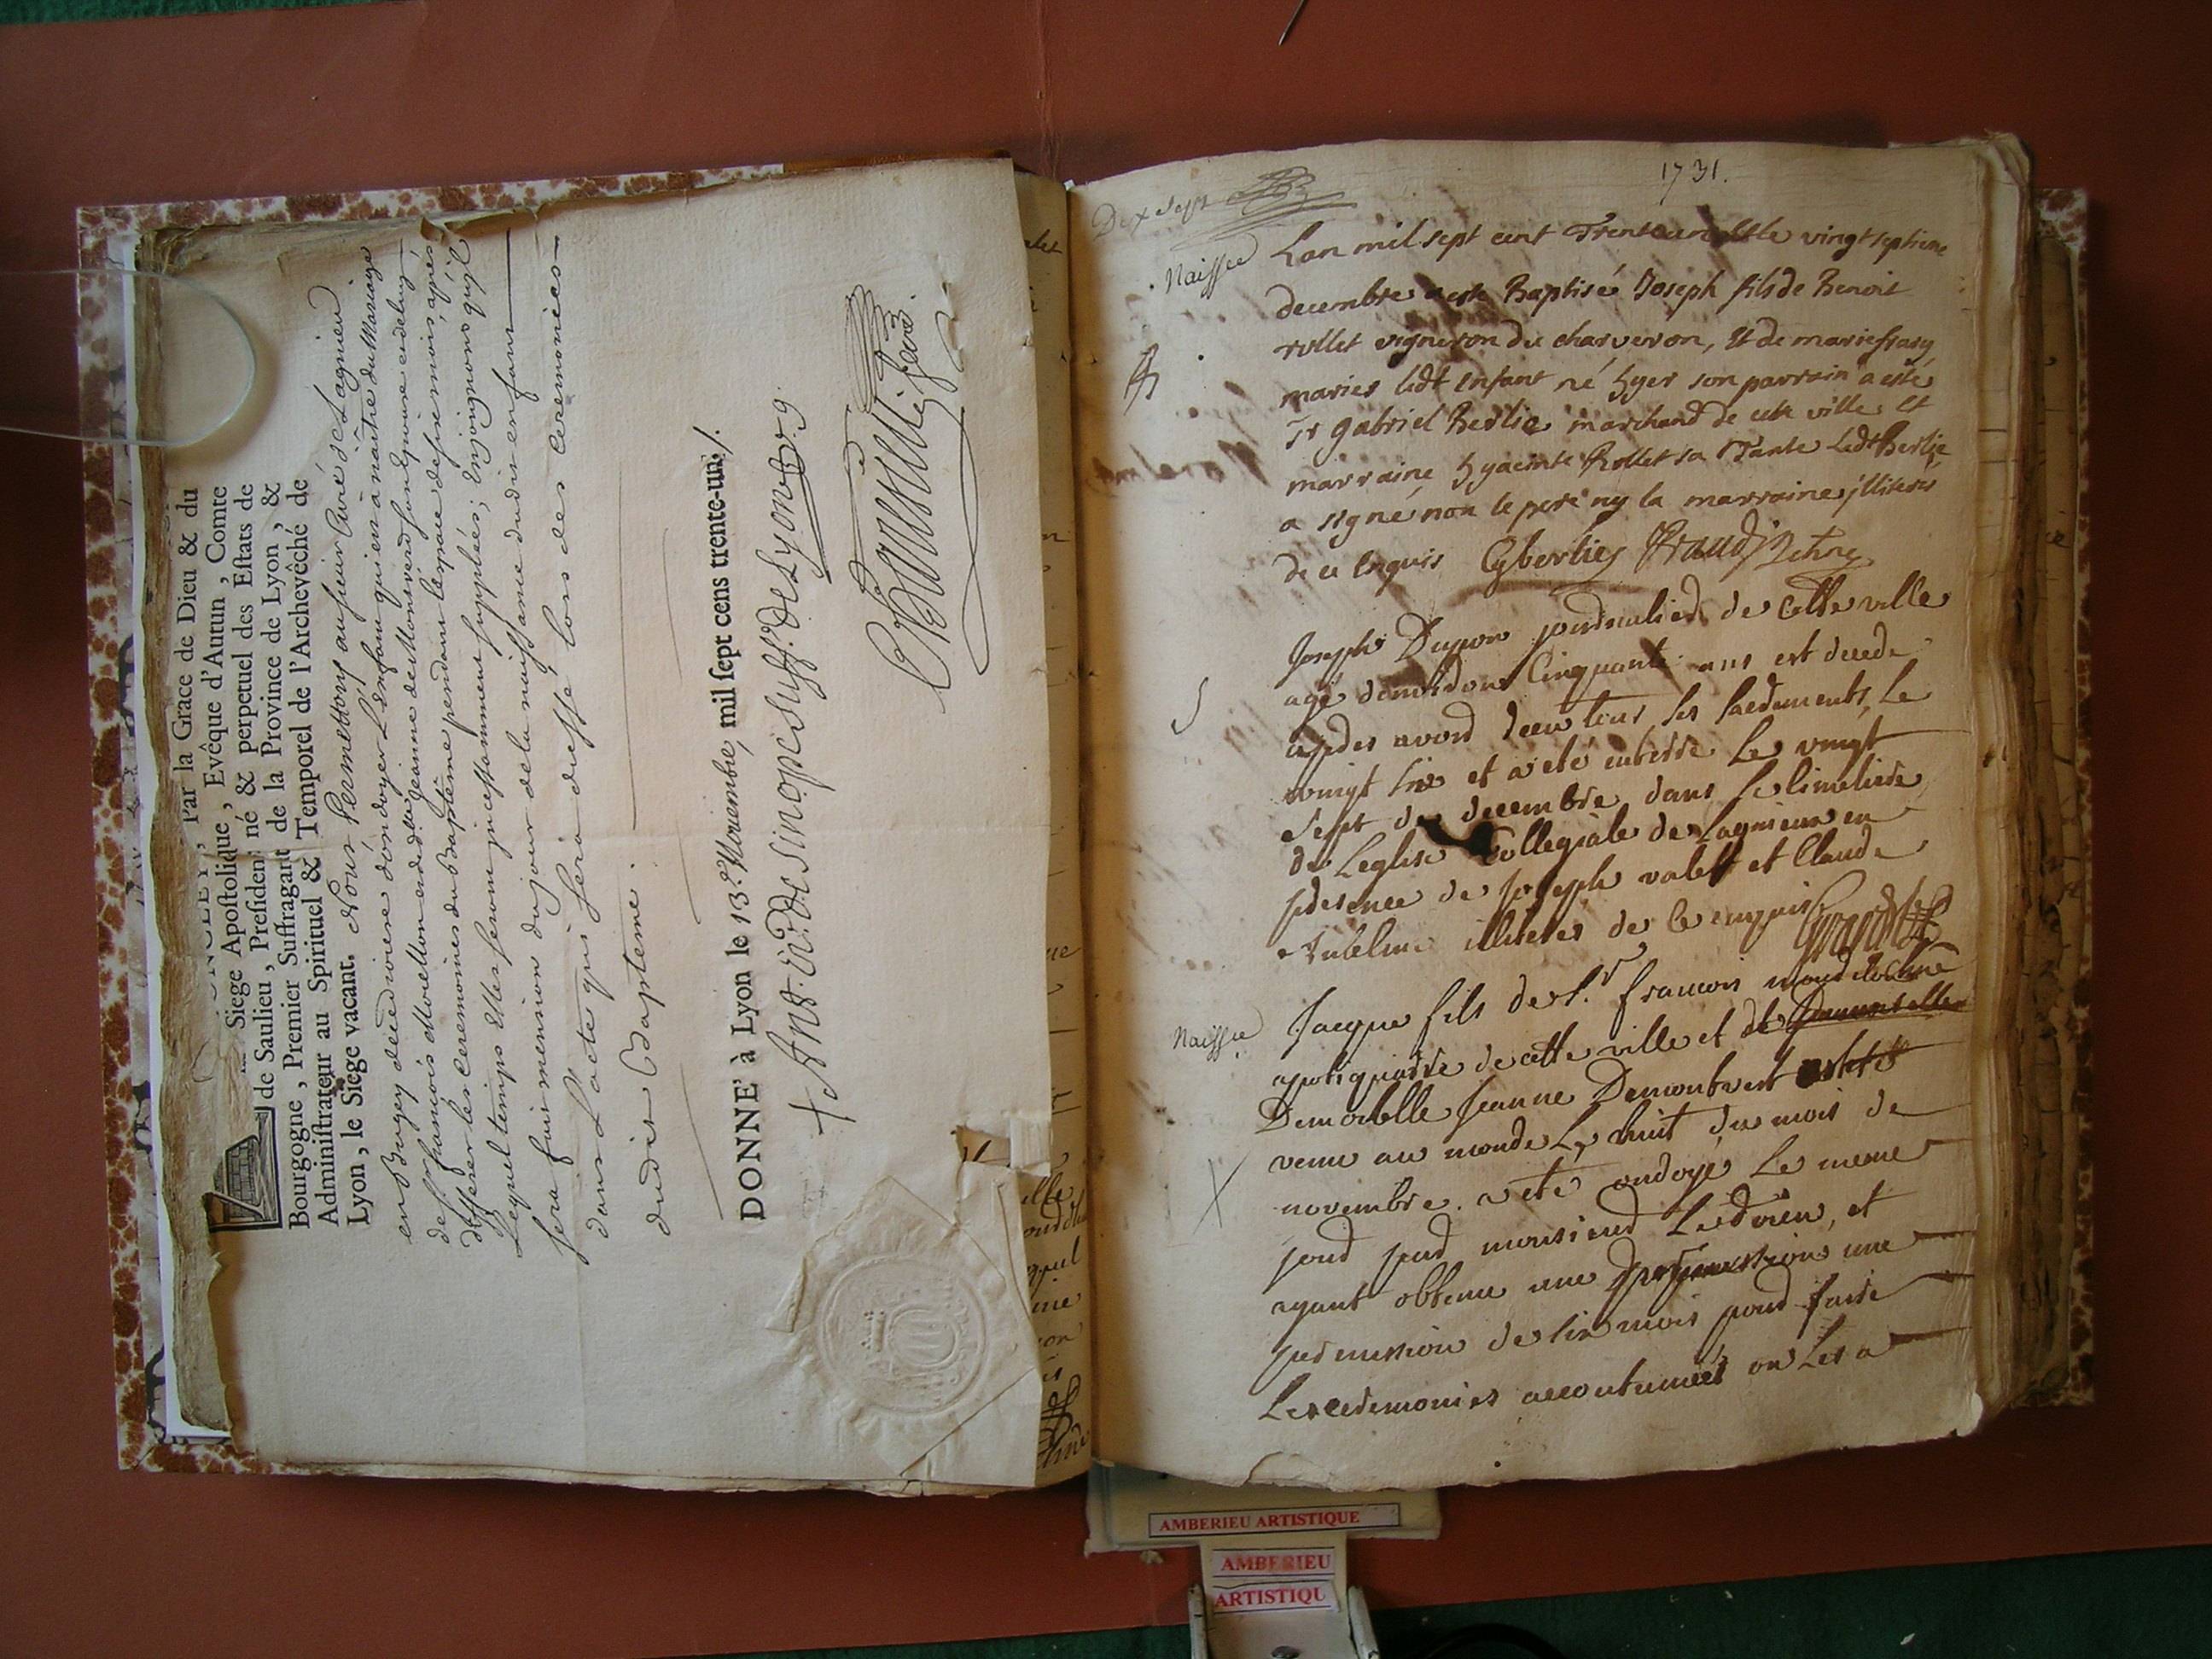 Par la Grace de Dieu & du
Siege Apostolique, Evêque d'Autun, Comte
de Saulieu, President né & perpetuel des Estats de
Bourgogne, Premier Suffragant de la Province de Lyon, &
Administrateur au Spirituel & Temporel de l'Archevêché de
Lyon, le Siege vacant. Nous Permettons au sieur Curé de Lagnieu
en Bugey de ce diocese d'ondoyer L'enfant qui est à naître du Mariage
de Sr. françois et de dlle. jeanne de Montverd son Epouse et de luy
differer les Ceremonies du Baptême pendant l'espace de six mois, après
Lequel temps Elles seront incessamment suppléés; Enjoignons qu'il
sera fait mention du jour de la naissance dudit enfant
dans L'acte qui sera dressé lors des Ceremonies
dudit Baptême.
DONNE' à Lyon le 13e. Novembre, mil sept cens trente-un./.
+ Ant. Ev. de Sinope Suff. de Lyon
1731.
Dix sept
Naissce
Lan mil sept cent Trente un et le vingt septieme
decembre a esté Baptisé Joseph fils de Benoit
rollet vigneron du charveron, et de marie frary
maries ledt enfant né hyer son parrain a esté
Sr gabriel Berlie marchand de cette ville et
marraine hyacinte Rollet sa Tante Ledt Berlie
a signé non le pere ny la marraine illiteres
de ce enquis
Joseph Dupon journalier de cette ville
agé denviron Cinquante ans est decede
apres avoir receu tous les sacrements, le
vingt six et a eté enterré Le vingt
sept de decembre dans le cimetiere
de Leglise Collegiale de Lagnieux en
presence de Joseph valet et Claude
illiteres de ce enquis
Naissce
Jacque fils de s.r francois
apotiquaire de cette ville et de Damoiselle
Demoiselle Jeanne Demontvert
venu au monde Le huit du mois de
novembre. a eté ondoyé Le meme
jour par monsieur Le doien, et
ayant obtenu une permission une
permission de six mois pour faire
Les ceremonies accoutumées on Les a
AMBERIEU ARTISTIQUE
AMBERIEU
ARTISTIQU